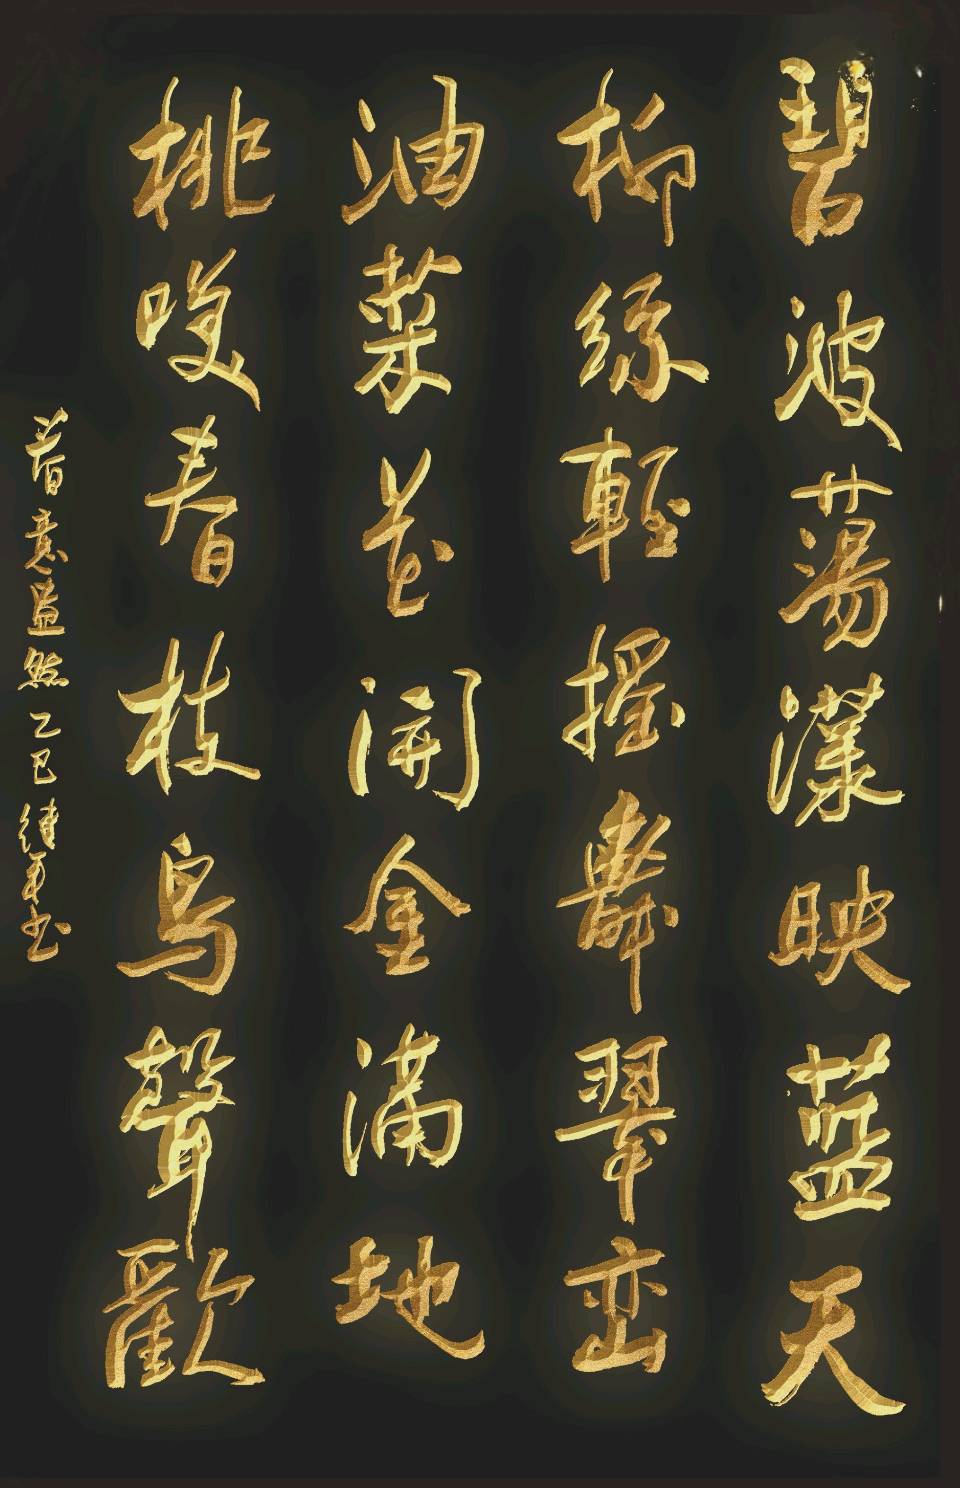 碧波蕩漾映藍天
柳絲輕搖舞翠巒
油菜花開金滿地
桃嘆春枝鳥聲歡
春意盎然乙巳繼軍书